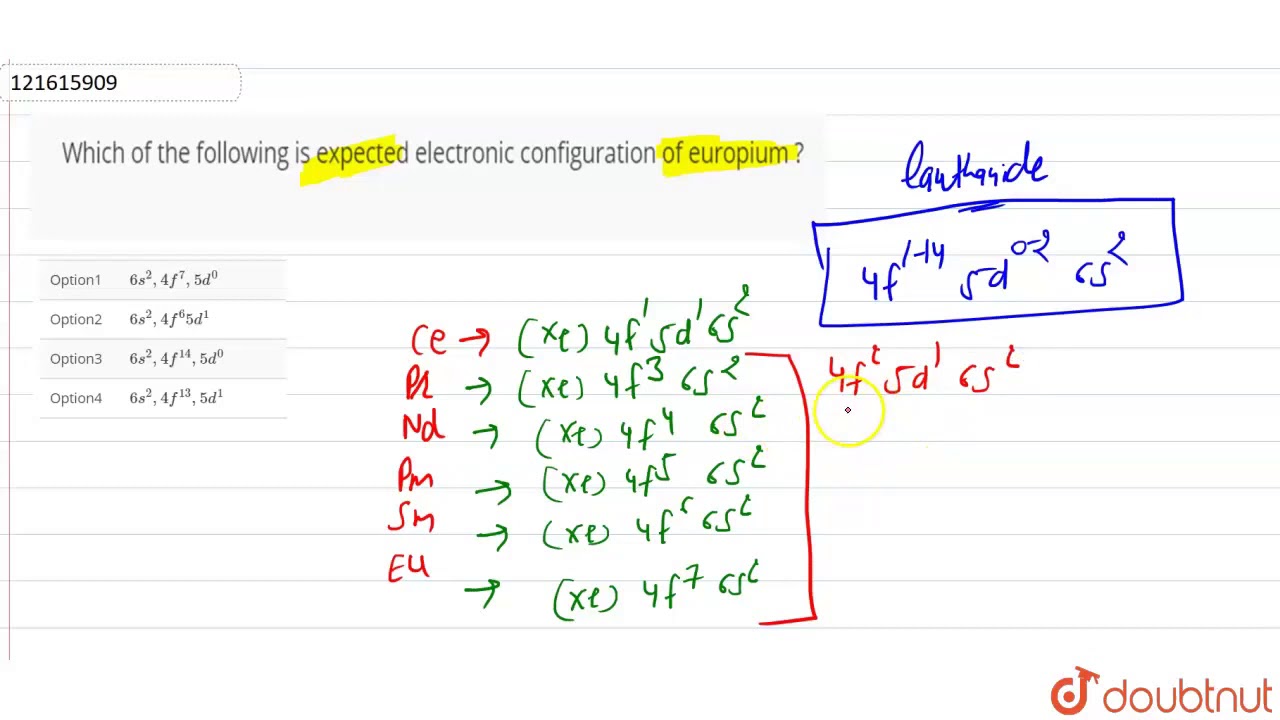 121615909
Which of the following is expected electronic configuration of europium ?
Option1 6s², 4f⁷, 5d⁰
Option2 6s², 4f⁶5d¹
Option3 6s², 4f¹⁴, 5d⁰
Option4 6s², 4f¹³, 5d¹
lanthanide
4f¹⁻¹⁴ 5d⁰⁻² 6s²
Ce → (Xe) 4f¹ 5d¹ 6s²
Pr → (Xe) 4f³ 6s²
Nd → (Xe) 4f⁴ 6s²
Pm → (Xe) 4f⁵ 6s²
Sm → (Xe) 4f⁶ 6s²
EU → (Xe) 4f⁷ 6s²
4f² 5d¹ 6s²
doubtnut